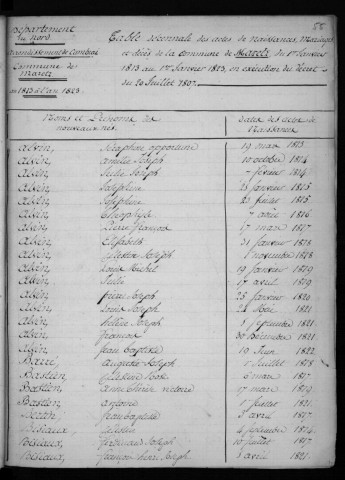 58
Département
du Nord
Arrondissement de Cambrai
Commune de
Maretz
an 1813 à l'an 1823
Table décennale des actes de naissances, mariages
et décès de la commune de Maretz, du 1er Janvier
1813 au 1er Janvier 1823, en exécution du Décret
du 20 Juillet 1807.
Noms et Prénoms des
nouveaux nés.
Dates des actes de
Naissances
Alvin, Séraphine opportune 19 mars 1813.
Alvin, Amélie Joseph 10 octobre 1814
Alvin, Julie Joseph 7 février 1814
Alvin, Joséphine 25 janvier 1815
Alvin, Joséphine 23 juillet 1815
Alvin, Théophile 7 août 1816
Alvin, Pierre françois 17 mars 1817
Alvin, Elisabeth 31 janvier 1818
Alvin, Célestine Joseph 1 novembre 1818
Alvin, Louis Michel 19 janvier 1819
Alvin, Jules 17 avril 1819
Alvin, Joseph 25 janvier 1820
Alvin, Louis Joseph 24 1821
Alvin, Joseph 3 septembre 1821
Alvin, françois 30 décembre 1821
Alvin, jean baptiste 19 Juin 1822
Augustin Joseph 1 Juillet 1818
Bastien, Célestine 6 mars 1817
Bastien, victoire 17 mars 1819
Bastien, antoine 1 juillet 1821
jean baptiste 3 avril 1817
Bisiaux, Célestin 4 septembre 1814
Bisiaux, ferdinand Joseph 10 Juillet 1817
Bisiaux, françois henri Joseph 1 avril 1821.